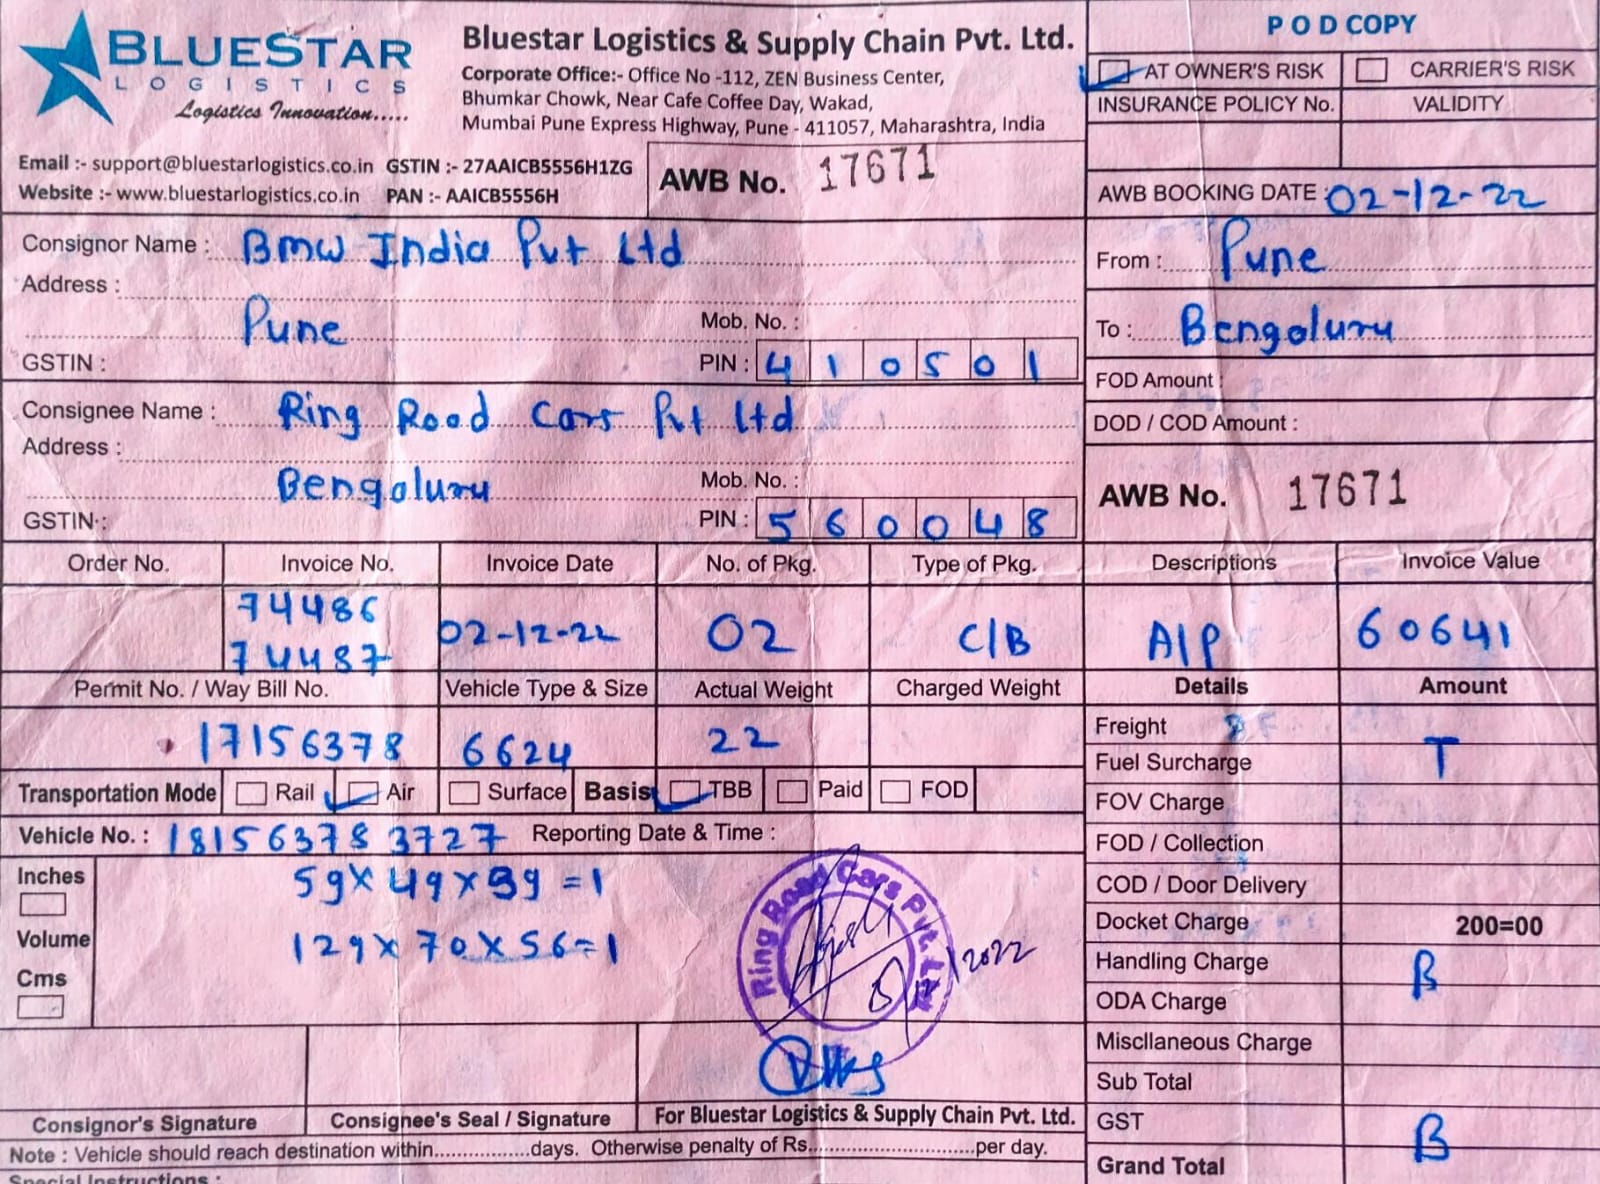 BLUESTAR
LOGISTICS
Logistics Innovation.....
Bluestar Logistics & Supply Chain Pvt. Ltd.
Corporate Office:- Office No -112, ZEN Business Center,
Bhumkar Chowk, Near Cafe Coffee Day, Wakad,
Mumbai Pune Express Highway, Pune - 411057, Maharashtra, India
Email :- support@bluestarlogistics.co.in GSTIN :- 27AAICB5556H1ZG
Website :- www.bluestarlogistics.co.in PAN :- AAICB5556H
AWB No. 17671
POD COPY
AT OWNER'S RISK CARRIER'S RISK
INSURANCE POLICY No. VALIDITY
AWB BOOKING DATE : 02-12-22
Consignor Name : BMW India Pvt Ltd
Address :
Pune
Mob. No. :
GSTIN :
PIN : 410501
From : Pune
To : Bengaluru
FOD Amount :
DOD / COD Amount :
Consignee Name : Ring Road Cars Pvt Ltd
Address :
Bengaluru
Mob. No. :
GSTIN :
PIN : 560048
AWB No. 17671
Order No. Invoice No. Invoice Date No. of Pkg. Type of Pkg. Descriptions Invoice Value
74486
74487 02-12-22 02 C/B A/P 60641
Permit No. / Way Bill No. Vehicle Type & Size Actual Weight Charged Weight Details Amount
17156378 6624 22
Transportation Mode Rail Air Surface Basis TBB Paid FOD
Vehicle No. : 181563783727 Reporting Date & Time :
Inches
Volume
Cms
59x49x39=1
129x70x56=1
Ring Road Cars Pvt. Ltd.
/2022
Freight
Fuel Surcharge T
FOV Charge
FOD / Collection
COD / Door Delivery
Docket Charge 200=00
Handling Charge B
ODA Charge
Miscllaneous Charge
Sub Total
GST B
Grand Total
Consignor's Signature Consignee's Seal / Signature For Bluestar Logistics & Supply Chain Pvt. Ltd.
Note : Vehicle should reach destination within................days. Otherwise penalty of Rs............................per day.
Special Instructions :